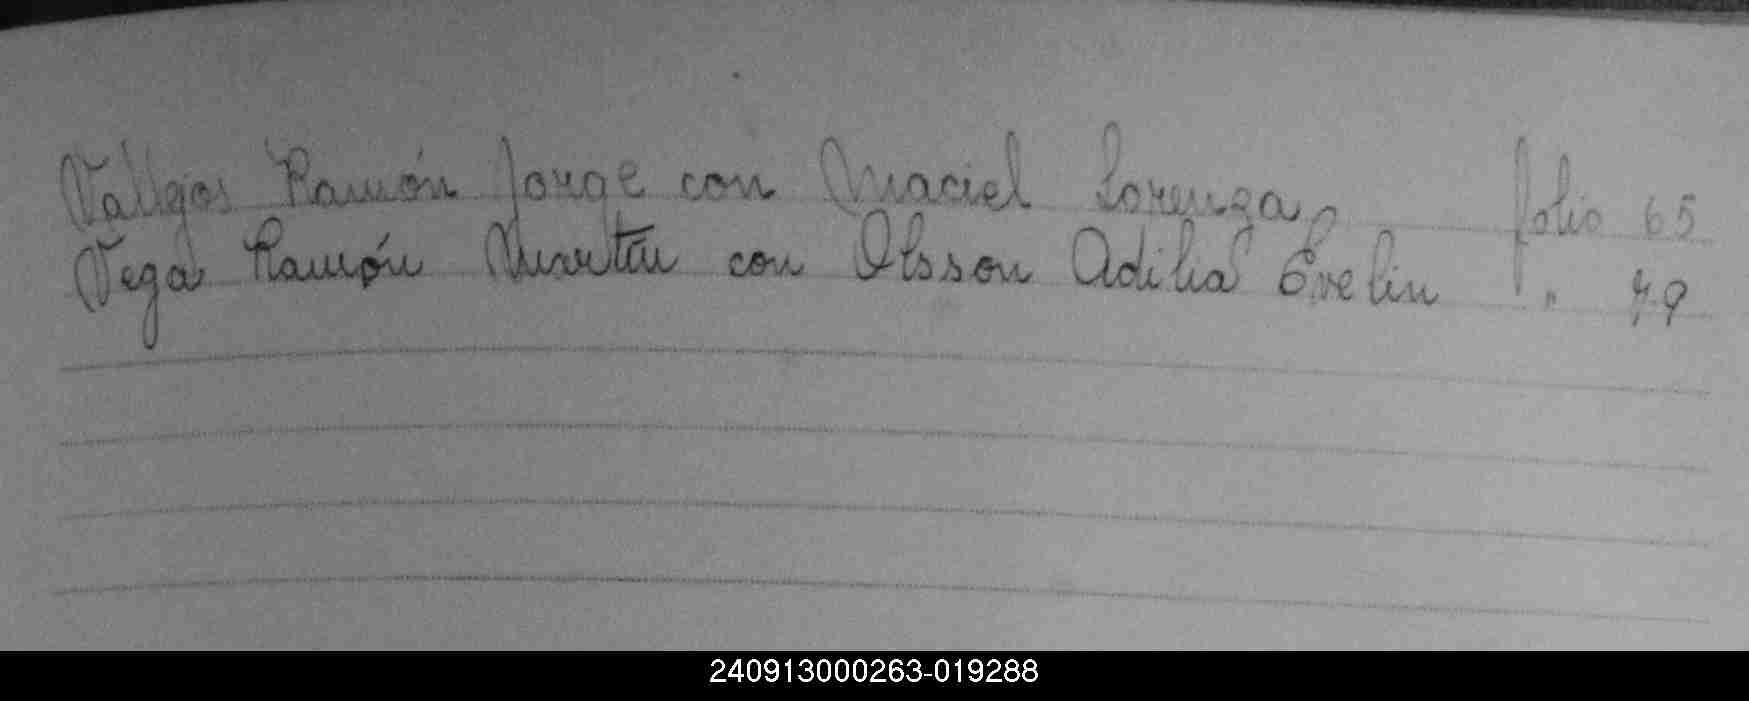 Vallejos Ramón Jorge con Maciel Lorenza folio 65
Vega Ramón con Olsson Adilia Evelin " 79
240913000263-019288